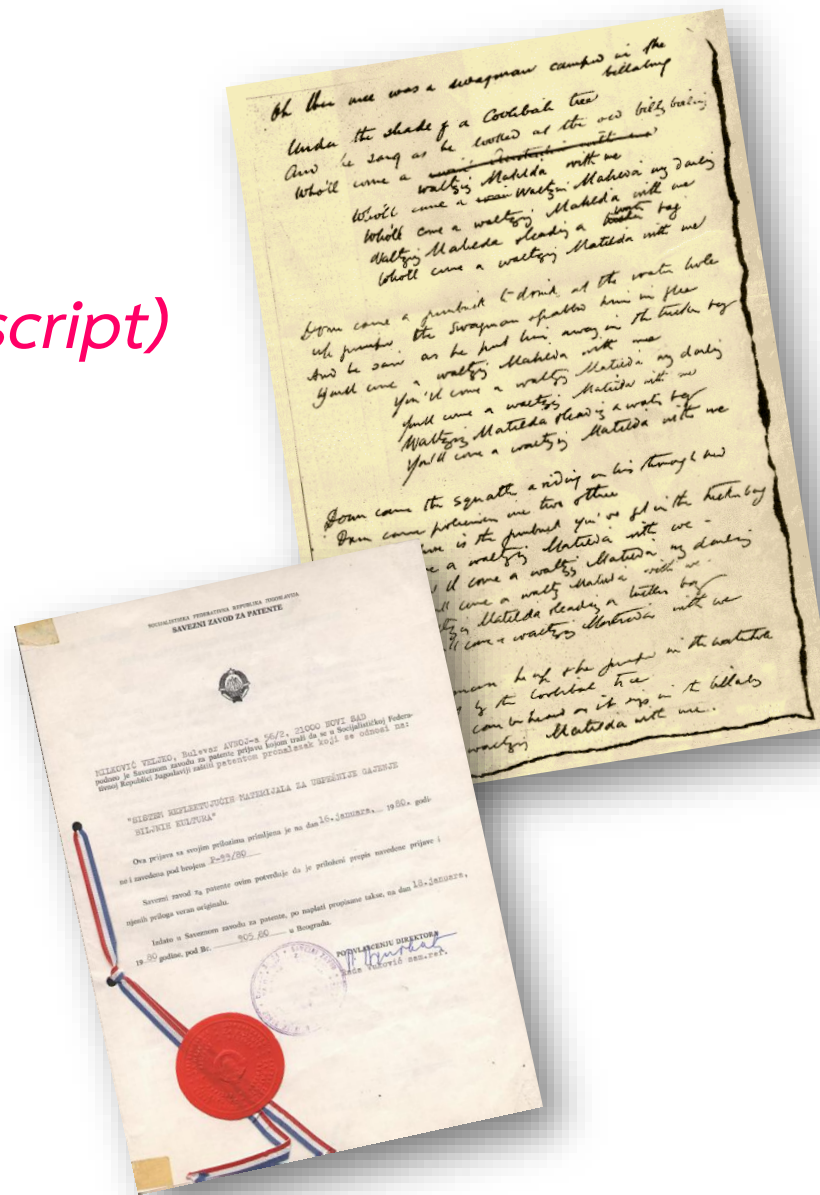 script)
Oh there once was a swagman camped in the
billabong
Under the shade of a Coolibah tree
And he sang as he looked at the old billy boiling
Who'll come a
waltzing Matilda with me
Who'll come a waltzing Matilda my darling
Who'll come a waltzing Matilda with me
Waltzing Matilda leading a water bag
Who'll come a waltzing Matilda with me
Down came a jumbuck to drink at the water hole
Up jumped the swagman grabbed him in glee
And he said as he put him away in the tucker bag
You'll come a waltzing Matilda with me
You'll come a waltzing Matilda my darling
You'll come a waltzing Matilda with me
Waltzing Matilda leading a water bag
You'll come a waltzing Matilda with me
Down came the squatter a riding on his thoroughbred
Down came policemen one two three
is the jumbuck you've got in the tucker bag
a waltzing Matilda with me
come a waltzing Matilda my darling
come a waltzing Matilda with me
Matilda leading a tucker bag
come a waltzing Matilda with me
he jumped in the waterhole
by the Coolibah tree
can be heard as it sings in the billabong
waltzing Matilda with me.
SOCIJALISTIČKA FEDERATIVNA REPUBLIKA JUGOSLAVIJA
SAVEZNI ZAVOD ZA PATENTE
MILKOVIĆ VELJKO, Bulevar AVNOJ-a 56/2, 21000 NOVI SAD
podneo je Saveznom zavodu za patente prijavu kojom traži da se u Socijalističkoj Federa-
tivnoj Republici Jugoslaviji zaštiti patentom pronalazak koji se odnosi na:
"SISTEM REFLEKTUJUĆIH MATERIJALA ZA USPEŠNIJE GAJENJE
BILJNIH KULTURA"
Ova prijava sa svojim prilozima primljena je na dan 16. januara, 1980. godi-
ne i zavedena pod brojem P-99/80
Savezni zavod za patente ovim potvrđuje da je priloženi prepis navedene prijave i
njenih priloga veran originalu.
Izdato u Saveznom zavodu za patente, po naplati propisane takse, na dan 18. januara,
1980 godine, pod Br. 905/80 u Beogradu.
PO OVLAŠĆENJU DIREKTORA
Vuković